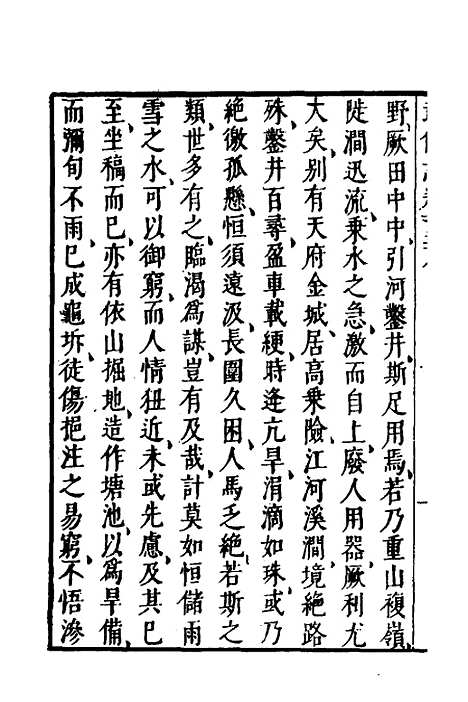 野厥田中中引河鑿井斯足用焉若乃重山複嶺
陡澗迅流乘水之急激而自上廢人用器厥利尤
大矣別有天府金城居高乘險江河溪澗境絶路
殊鑿井百尋盈車載綆時逢亢旱涓滴如珠或乃
絶徼孤懸恒須遠汲長圍久困人馬乏絶若斯之
類世多有之臨渴爲謀豈有及哉計莫如恒儲雨
雪之水可以御窮而人情狃近未或先慮及其巳
至坐稿而巳亦有依山掘地造作塘池以爲旱備
而彌旬不雨巳成龜坼徒傷挹注之易窮不悟滲